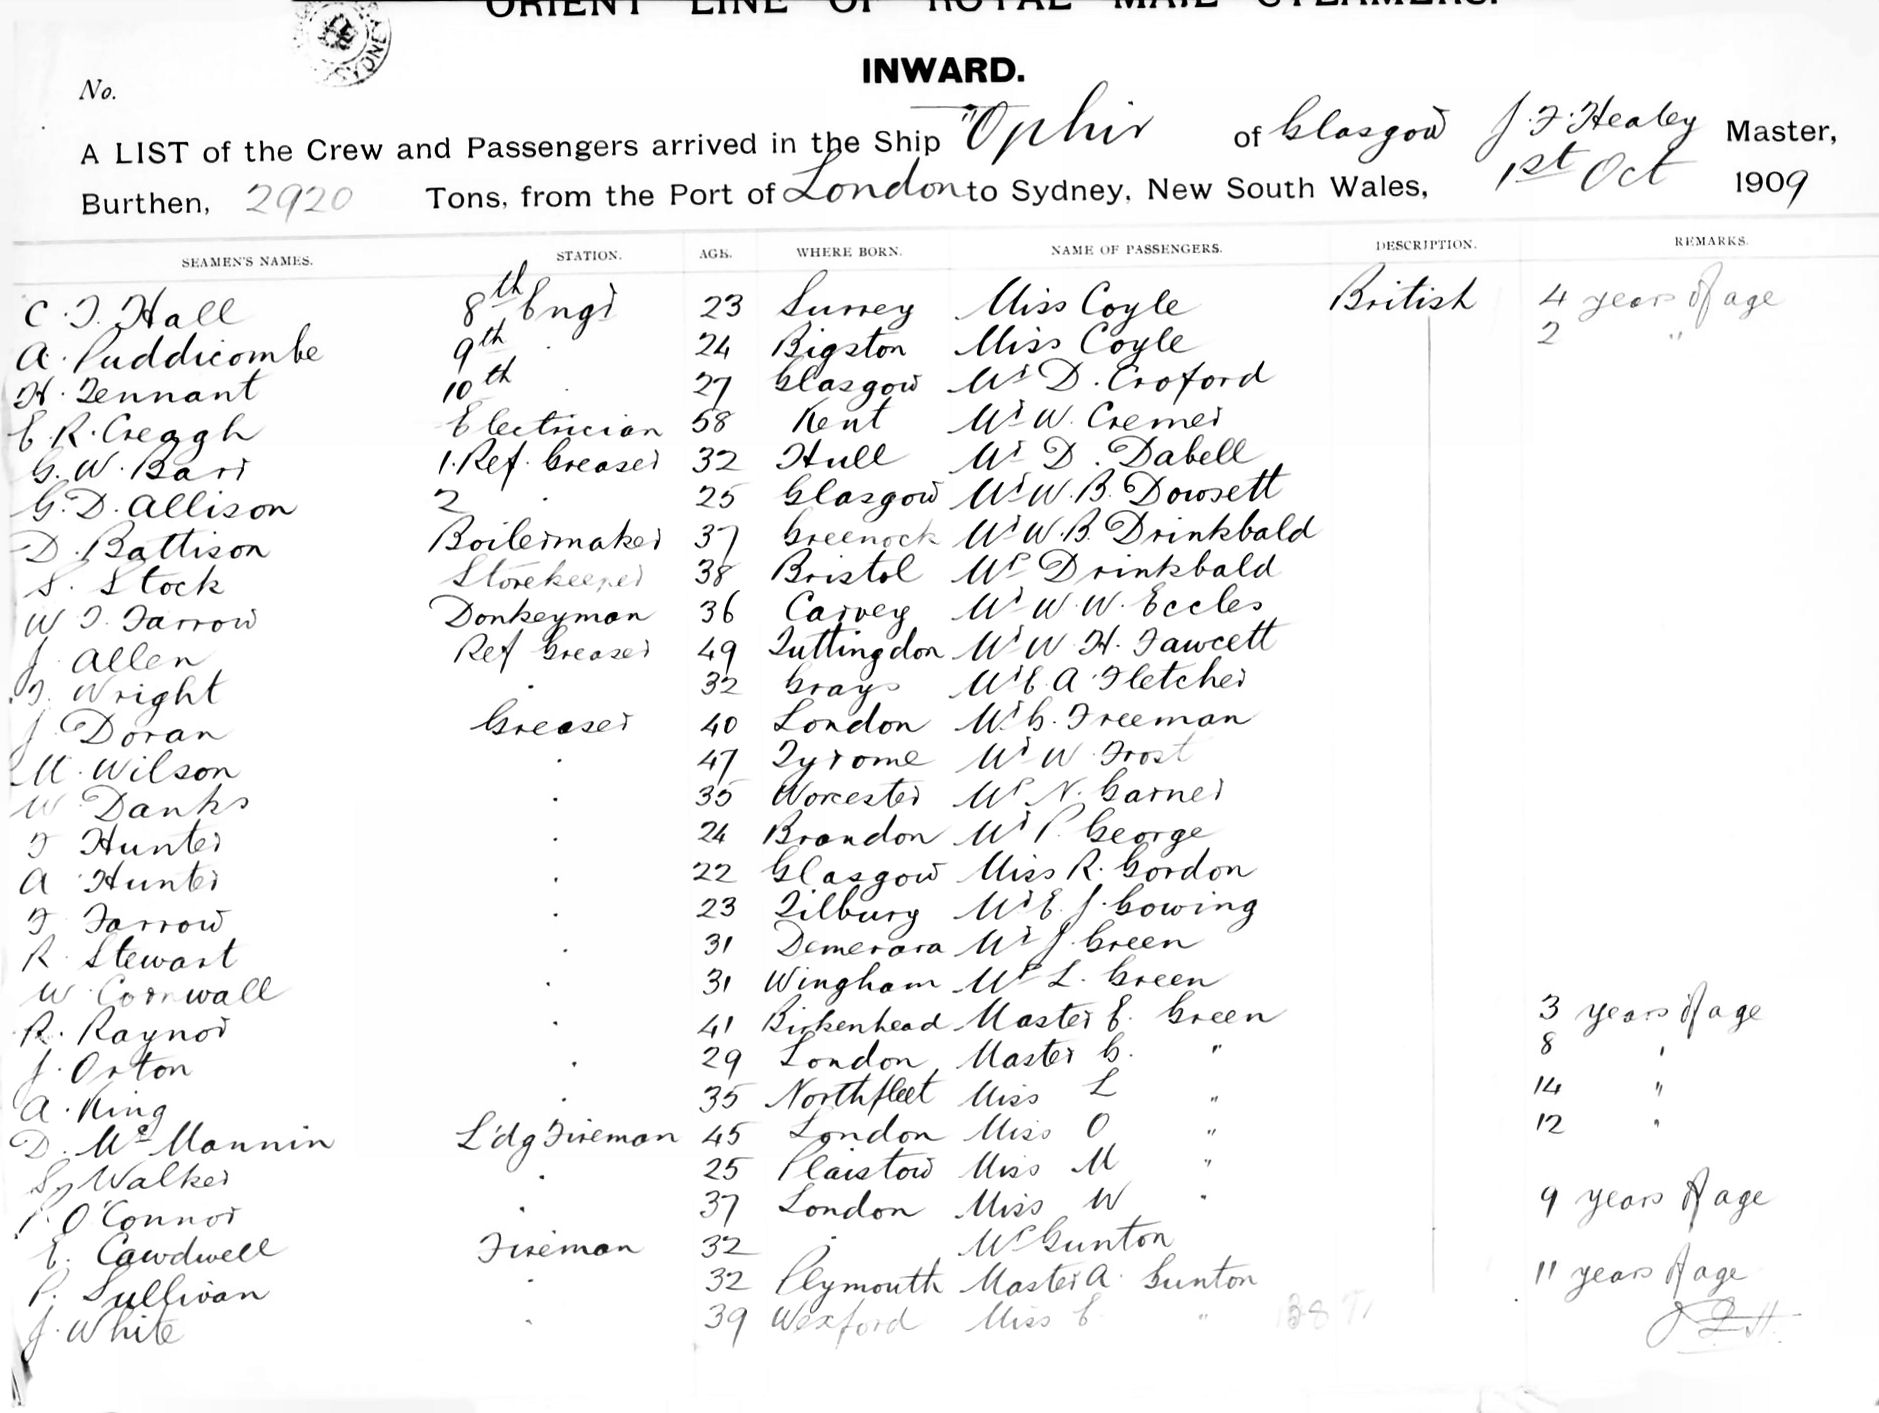 ORIENT LINE OF ROYAL MAIL STEAMERS.
SYDNEY
INWARD.
No.
A LIST of the Crew and Passengers arrived in the Ship "Ophir of Glasgow J. F. Healey Master,
Burthen, 2920 Tons, from the Port of London to Sydney, New South Wales, 1st Oct 1909
SEAMEN'S NAMES. STATION. AGE. WHERE BORN. NAME OF PASSENGERS. DESCRIPTION. REMARKS.
C. F. Hall 8th Engr 23 Surrey Miss Coyle British 4 years of age
A. Puddicombe 9th . 24 Bigston Miss Coyle 2 "
H. Tennant 10th . 27 Glasgow Mr D. Croford
E. R. Creagh Electrician 58 Kent Mr W. Cremer
G. W. Barr 1. Ref. Greaser 32 Hull Mr D. Dabell
G. D. Allison 2 . 25 Glasgow Mr W. B. Dowsett
D. Battison Boilermaker 37 Greenock Mr W. B. Drinkbald
S. Stock Storekeeper 38 Bristol Mrs Drinkbald
W. F. Farrow Donkeyman 36 Carvey Mr W. W. Eccles
J. Allen Ref Greaser 49 Tuttingdon Mr W. H. Fawcett
F. Wright . 32 Grays Mr E. A. Fletcher
J. Doran Greaser 40 London Mr G. Freeman
M. Wilson . 47 Tyrome Mr W. Frost
W. Danks . 35 Worcester Mrs N. Garner
F Hunter . 24 Brandon Mr P. George
A Hunter . 22 Glasgow Miss R. Gordon
F. Farrow . 23 Tilbury Mr E. J. Gowing
R. Stewart . 31 Demerara Mr J. Green
W. Cornwall . 31 Wingham Mrs L. Green
R. Raynor . 41 Birkenhead Master E. Green 3 years of age
J. Orton . 29 London Master G. " 8 "
A. King . 35 Northfleet Miss L " 14 "
D. McMannin L'dg Fireman 45 London Miss O " 12 "
Sy Walker . 25 Plaistow Miss M "
P. O'Connor . 37 London Miss W " 9 years of age
E. Cawdwell Fireman 32 . Mrs Gunton
P. Sullivan . 32 Plymouth Master A. Gunton 11 years of age
J. White . 39 Wexford Miss E "